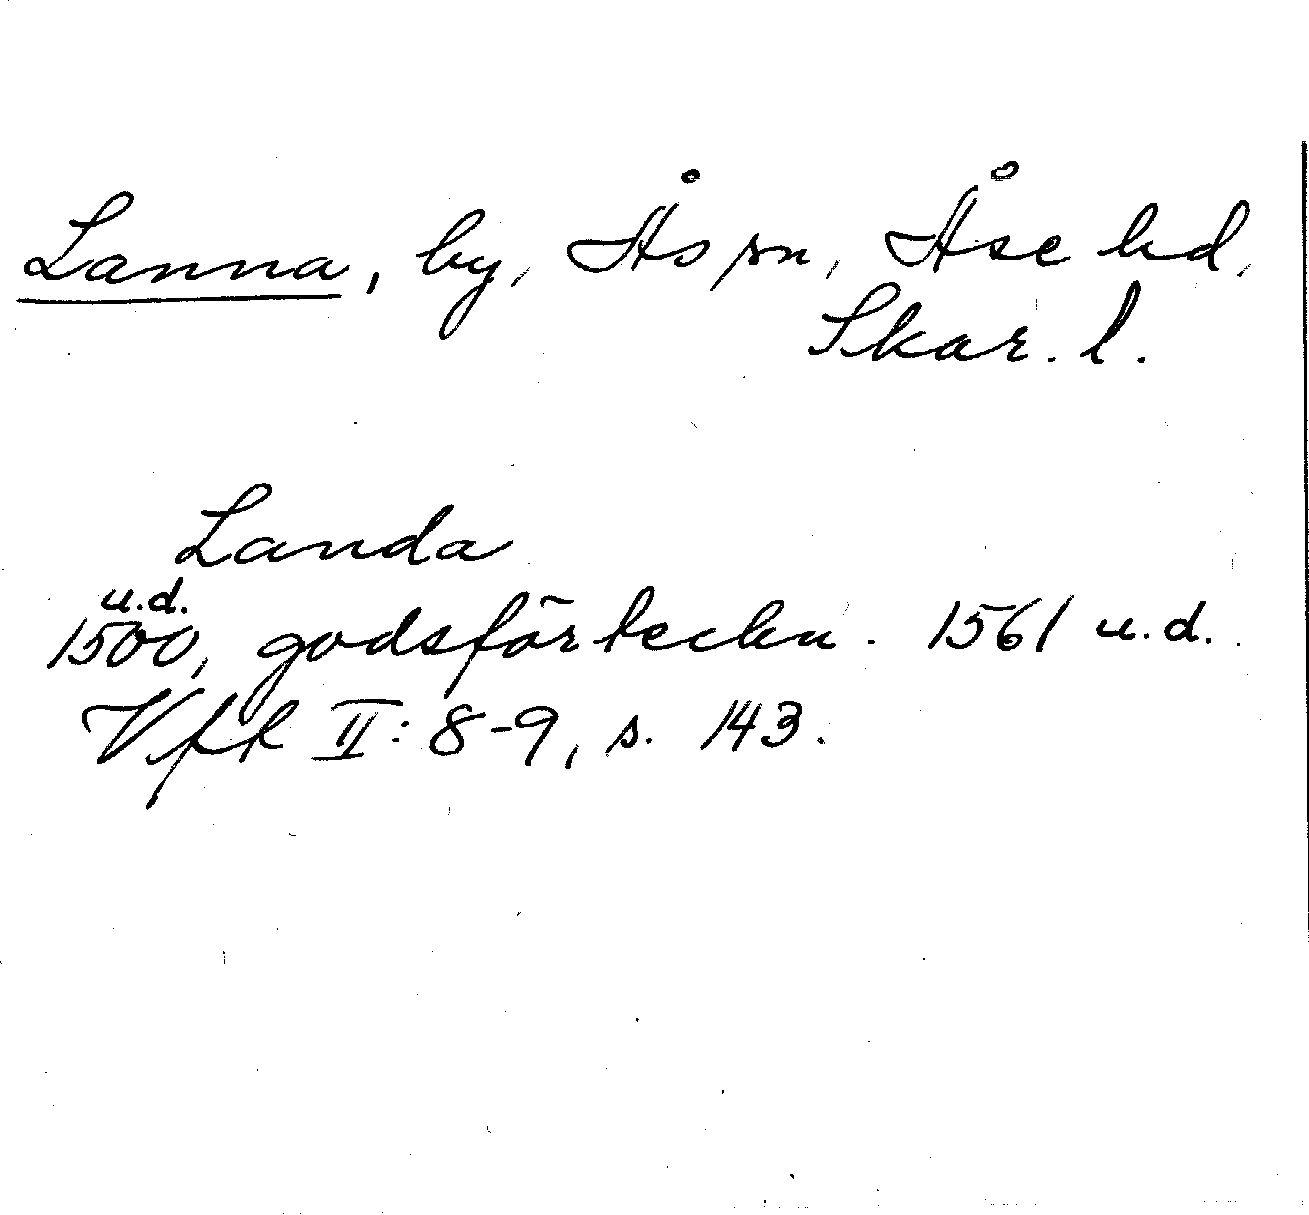 Lanna, by, Ås sn, Åse hd,
Skar. l.
Landa
u.d.
1500, godsförteckn. 1561 u.d.
Vft II: 8-9, s. 143.